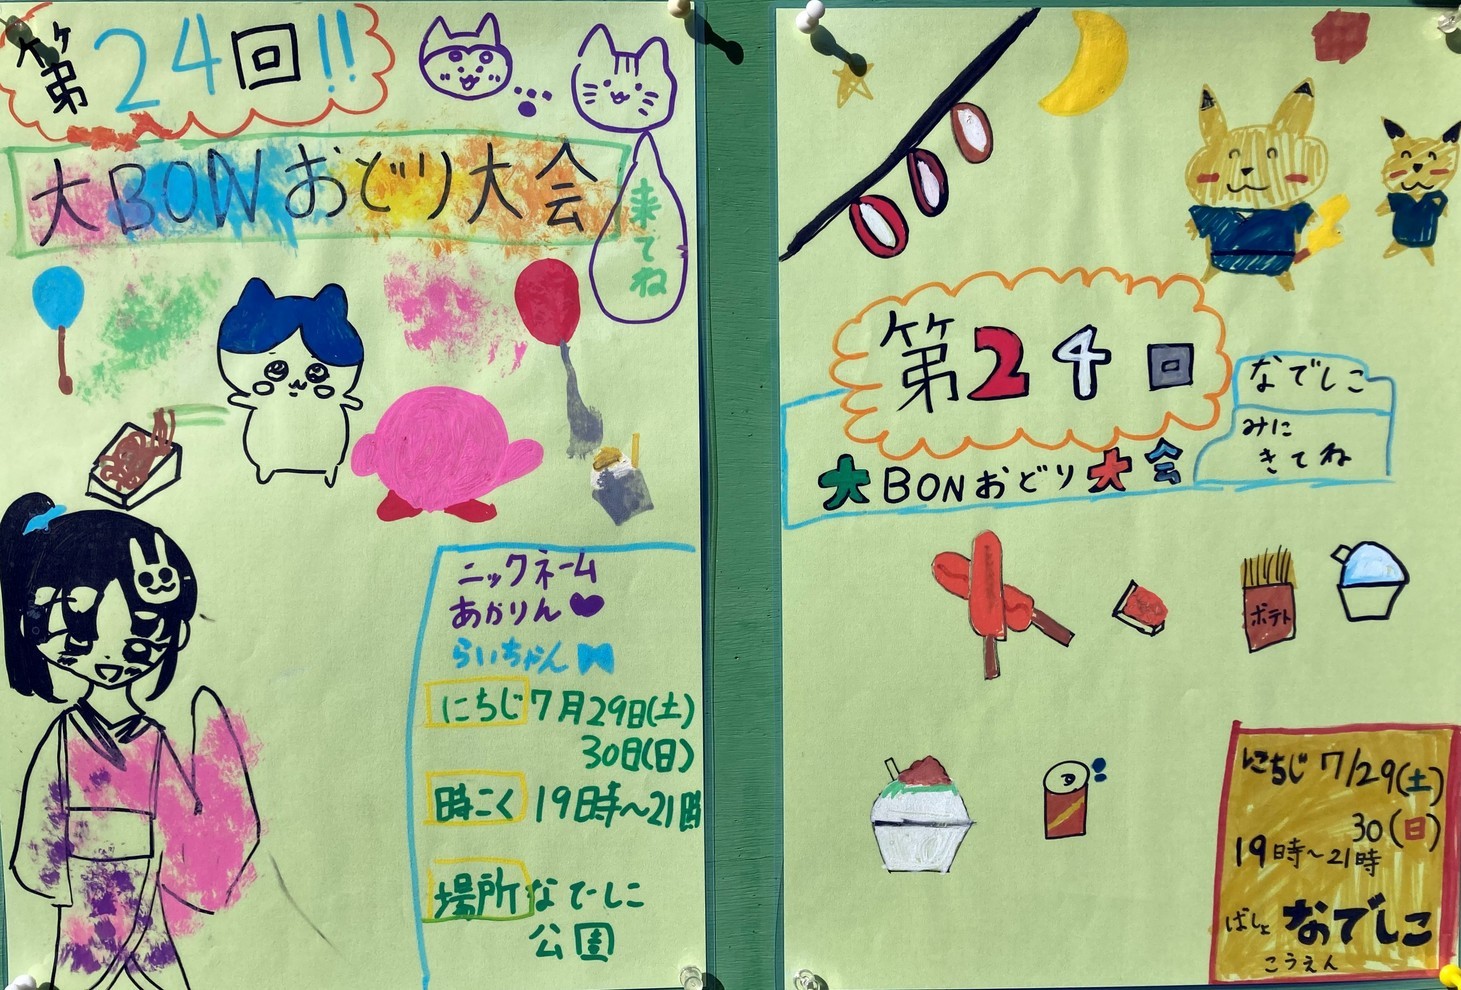 第24回!!
大BONおどり大会
来てね
ニックネーム
あかりん
らいちゃん
にちじ 7月29日(土)
30日(日)
時こく 19時~21時
場所 なでしこ
公園
第24回
大BONおどり大会
なでしこ
みに
きてね
ポテト
にちじ 7/29(土)
30(日)
19時~21時
ばしょ なでしこ
こうえん